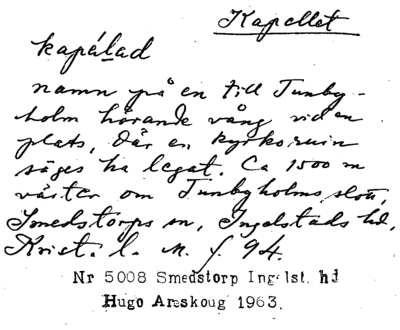 Kapellet
kapálad
namn på en till Tunby-
holm hörande vång vid en
plats, där en kyrkoruin
säges ha legat. Ca 1500 m
väster om Tunbyholms slott,
Smedstorps sn, Ingelstads hd,
Krist. l. M. f. 94.
Nr 5008 Smedstorp Ingelst. hd
Hugo Areskoug 1963.